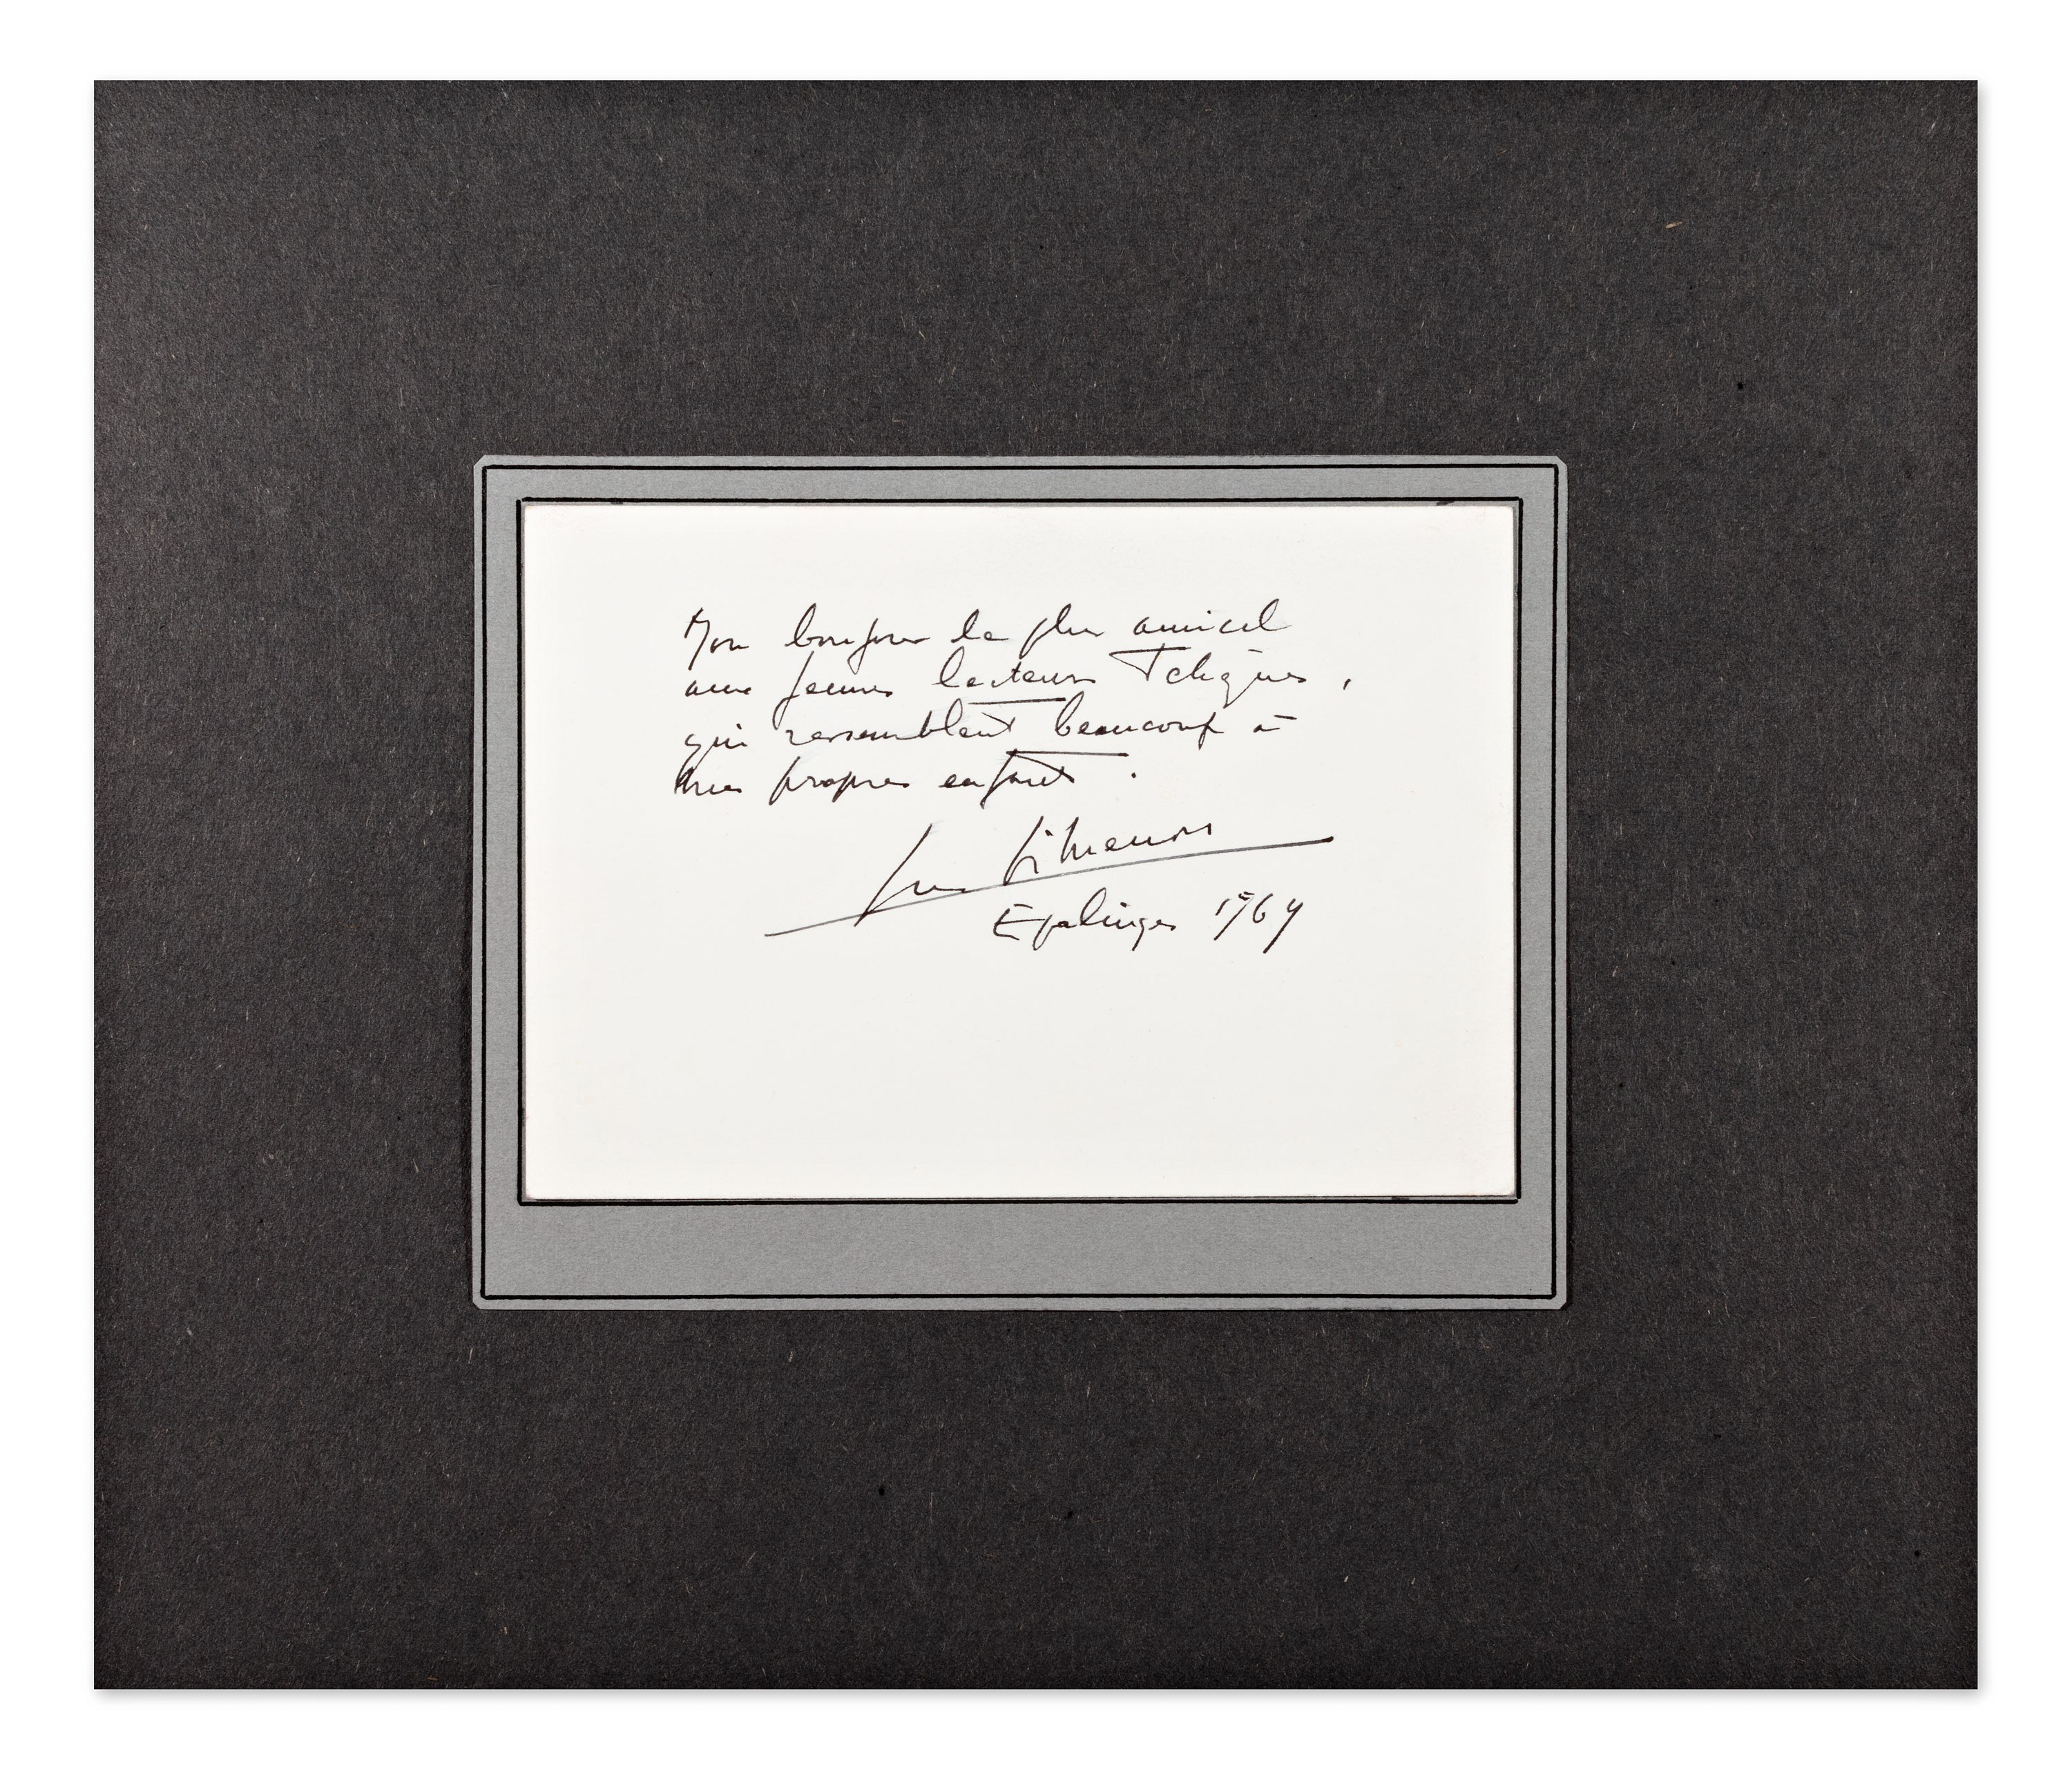 Mon bonjour le plus amical
aux jeunes lecteurs Tchèques,
qui ressemblent beaucoup à
mes propres enfants.
Georges Simenon
Epalinges 1969